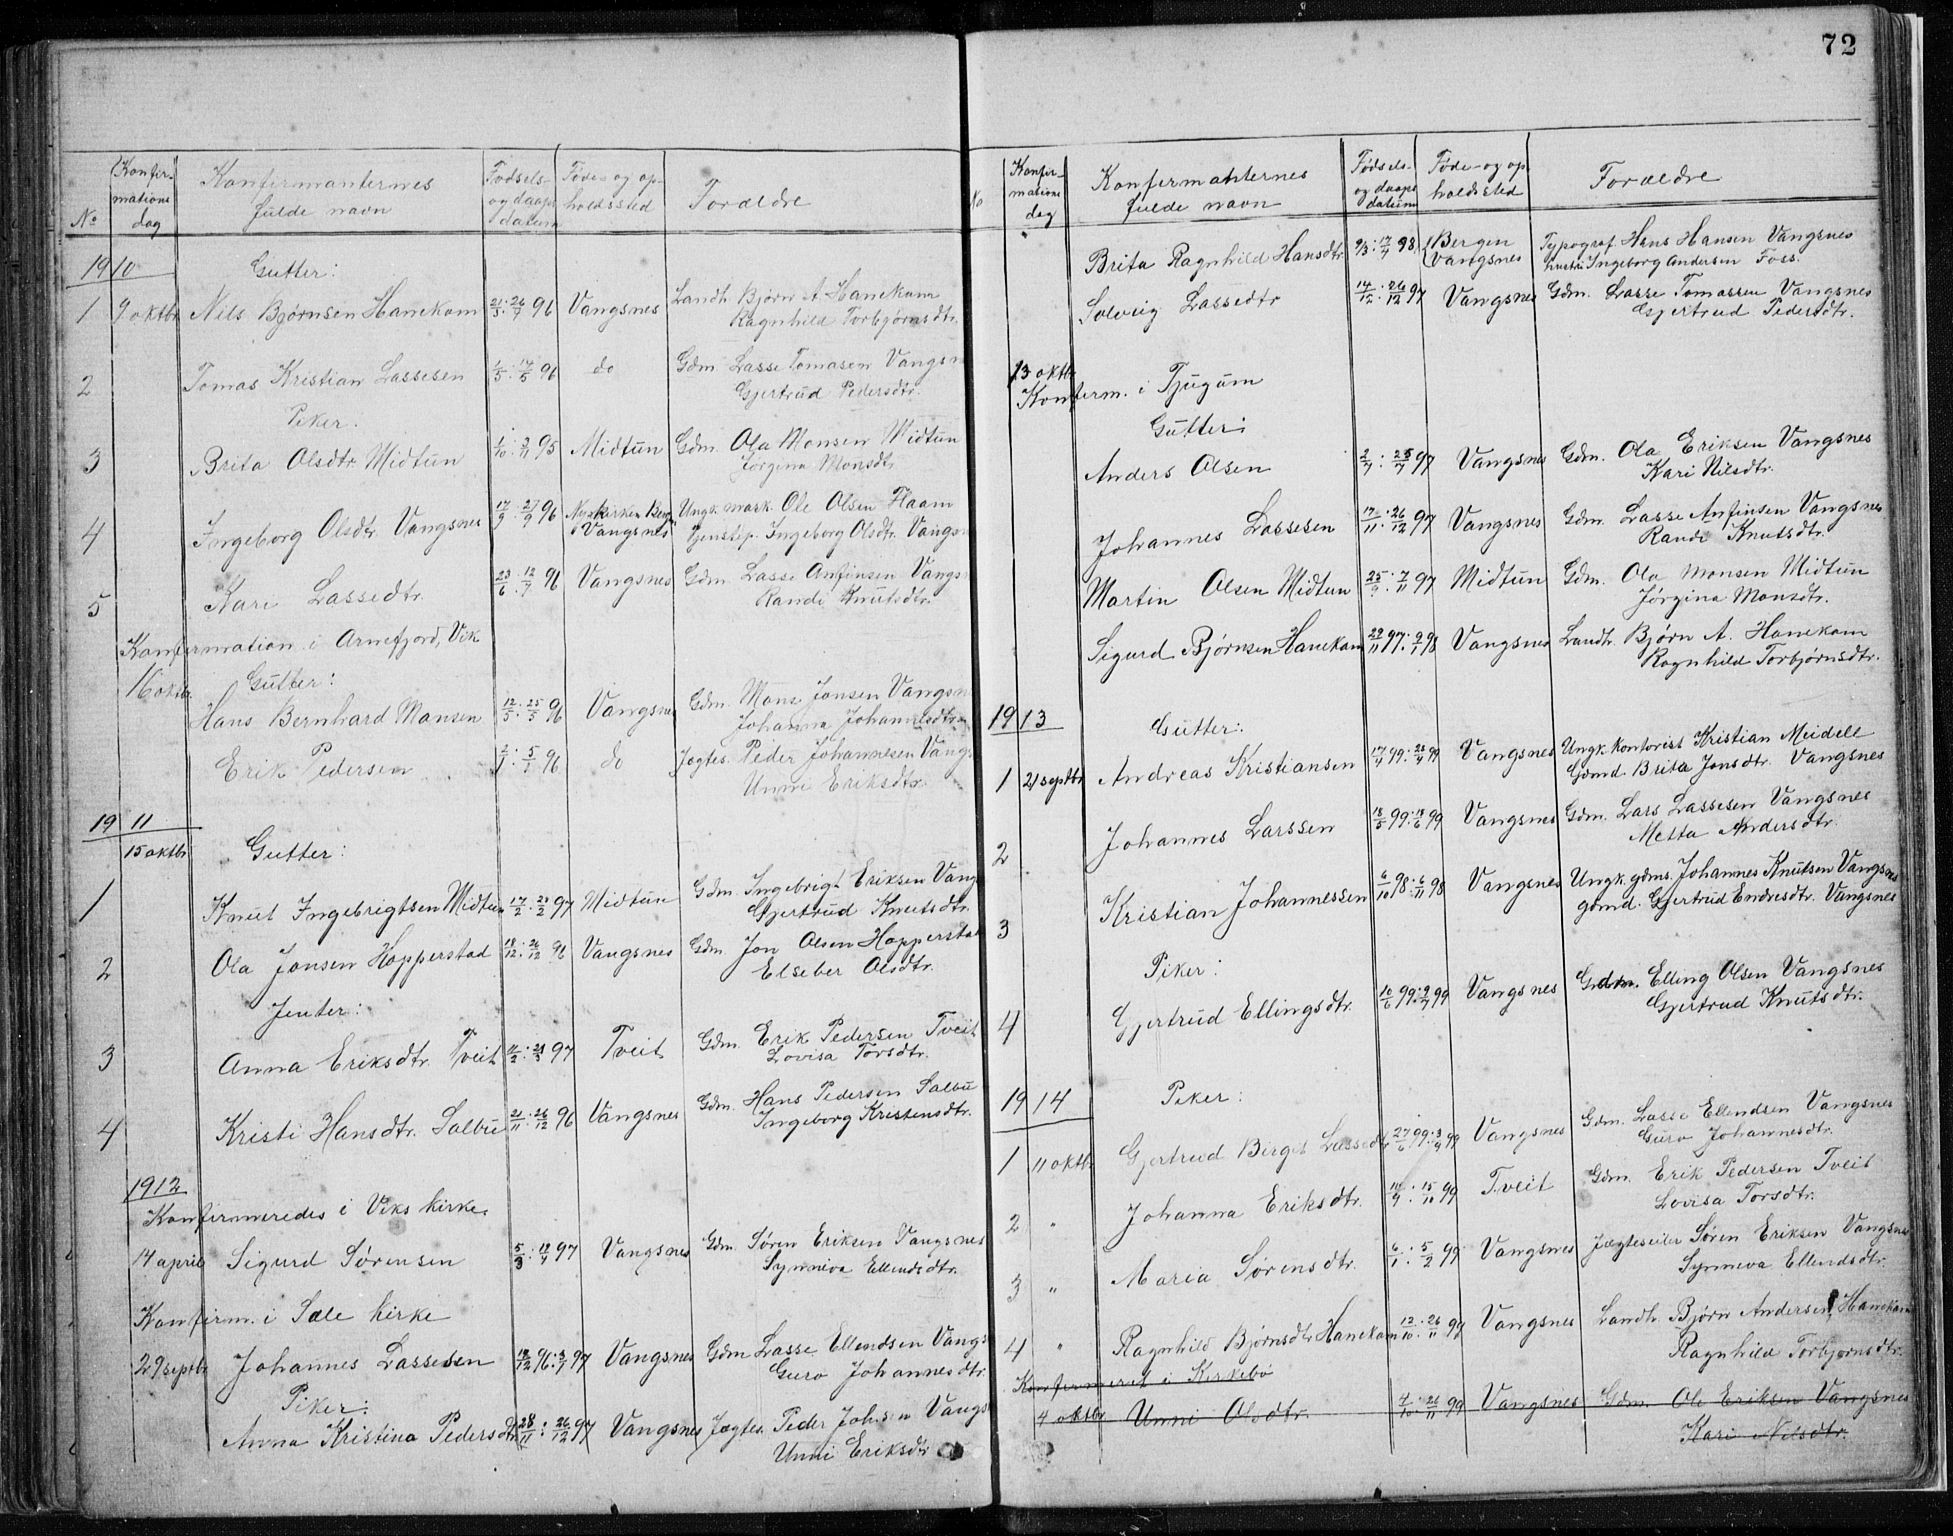 72
No
Konfirmations dag
Konfirmanternes fulde navn
Fødsels- og daaps datum
Føde- og opholdssted
Forældre
1910
Gutter:
1 9 oktbr Nils Bjørnsen Hanekam 21/5. 26/7 96 Vangsnes Landh. Bjørn A. Hanekam
Ragnhild Torbjørnsdtr.
2 Tomas Kristian Lassesen 1/5. 17/5 96 do Gdm. Lasse Tomasen Vangsn
Gjertrud Pedersdtr.
Piker.
3 Brita Olsdtr. Midtun 1/10. 3/11 95 Midtun Gdm. Ola Monsen Midtun
Jørgina Monsdtr.
4 Ingeborg Olsdtr. Vangsnes 17/9. 27/9 96 Nykirken Ber Vangsnes Ungk. mask. Ole Olsen Flaam
Tjenstep. Ingeborg Olsdtr. Vangsn
5 Kari Lassedtr. 23/6. 12/7 96 Vangsnes Gdm. Lasse Anfinsen Vangsn
Randi Knutsdtr.
Konfirmation i Arnefjord, Vik
16 oktbr Gutter:
Hans Bernhard Monsen 12/5. 25/5 96 Vangsnes Gdm. Mons Jonsen Vangsn
Johanna Johannesdtr.
Erik Pedersen 2/1. 5/1 96 do Jægtes. Peder Johannesen Vangs
Unni Eriksdtr.
1911
15 oktbr Gutter:
1 Knut Ingebrigtsen Midtun 17/2. 23/2 97 Midtun Gdm. Ingebrigt Eriksen Vang
Gjertrud Knutsdtr.
2 Ola Jonsen Hopperstad 18/12. 26/12 96 Vangsnes Gdm. Jon Olsen Hopperstad
Elseber Olsdtr.
Jenter:
3 Anna Eriksdtr. Tveit 11/2. 21/3 97 Tveit Gdm. Erik Pedersen Tveit
Lovisa Torsdtr.
4 Kristi Hansdtr. Salbu 21/11. 26/12 96 Vangsnes Gdm. Hans Pedersen Salbu
Ingeborg Kristensdtr.
1912
Konfirmeredes i Viks kirke
14 april Sigurd Sørensen 5/3. 19/4 97 Vangsnes Gdm. Søren Eriksen Vangsnes
Synneva Ellendsdtr.
Konfirm. i Sæle kirke
29 septbr Johannes Lassesen 18/12 96. 3/1 97 Vangsnes Gdm Lasse Ellendsen Vangs
Guro Johannesdtr.
Piker:
Anna Kristina Pedersdtr 28/11: 26/12 97 Vangsnes Jægtes. Peder Johsn Vangs
Unni Eriksdtr
No
Konfirmations dag
Konfirmanternes fulde navn
Fødsels- og daaps datum
Føde- og opholdssted
Forældre
Brita Ragnhild Hansdtr. 9/3: 17/7 98 Bergen Vangsnes Typograf Hans Hansen Vangsnes
hustru Ingeborg Andersen Foss.
Solveig Lassedtr 14/12: 26/12 97 Vangsnes Gdm. Lasse Tomassen Vangsnes
Gjertrud Pedersdtr.
13 oktbr
Konferm. i Tjugum
Gutter:
Anders Olsen 2/7: 25/7 97 Vangsnes Gdm. Ola Eriksen Vangsnes
Kari Nilsdtr.
Johannes Lassesen 17/11. 26/12 97 Vangsnes Gdm. Lasse Anfinsen Vangsnes
Randi Knutsdtr.
Martin Olsen Midtun 25/9. 7/11 97 Midtun Gdm. Ola Monsen Midtun
Jørgina Monsdtr.
Sigurd Bjørnsen Hanekam 29/11 97. 9/1 98 Vangsnes Landh. Bjørn A. Hanekam
Ragnhild Torbjørnsdtr.
1913 Gutter:
1 21 septbr Andreas Kristiansen 17/4 99: 23/4 99 Vangsnes Ungk. kontorist Kristian Meidell
Gdmd Brita Jonsdtr. Vangsnes
2 Johannes Larssen 18/5 99: 18/6 99 Vangsnes Gdm. Lars Lassesen Vangsnes
Metta Andersdtr.
3 Kristian Johannessen 6/10 98: 6/11 98 Vangsnes Ungk. gdms. Johannes Knutsen Vangsnes
gdmd. Gjertrud Endresdtr. Vangsnes
Piker:
4 Gjertrud Ellingsdtr. 10/6 99: 9/7 99 Vangsnes Gdm. Elling Olsen Vangsnes
Gjertrud Knutsdtr.
1914 Piker:
1 11 oktbr Gjertrud Birgit Lassedtr 27/6 99: 3/9 99 Vangsnes Gdm. Lasse Ellendsen Vangsnes
Guro Johannesdtr.
2 " Johanna Eriksdtr. 14/9. 15/10 99 Tveit Gdm. Erik Pedersen Tveit
Lovisa Torsdtr.
3 " Maria Sørensdtr. 6/1: 5/2 99 Vangsnes Jægteseiler Søren Eriksen Vangsnes
Synneva Ellendsdtr.
4 " Ragnhild Bjørnsdtr Hanekam 12/10. 26/11 99 Vangsnes Landh. Bjørn Andersen Hanekam
Ragnhild Torbjørnsdtr.
Konfirmeret i Kirkebø
4 oktbr Unni Olsdtr. 4/10 26/11 99 Vangsnes Gdm. Ole Eriksen Vangsnes
Kari Nilsdtr.